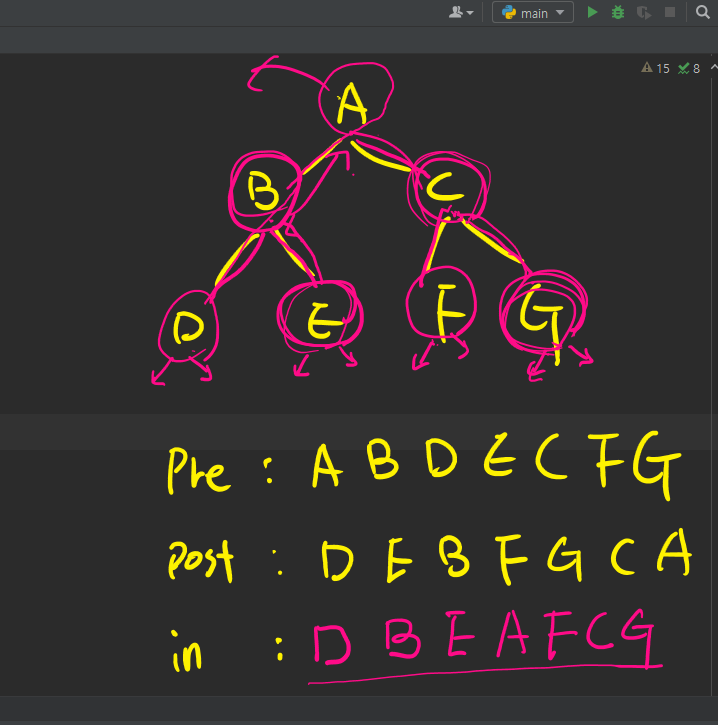 main
15 8
A
B C
D E F G
Pre : A B D E C F G
post : D E B F G C A
in : D B E A F C G